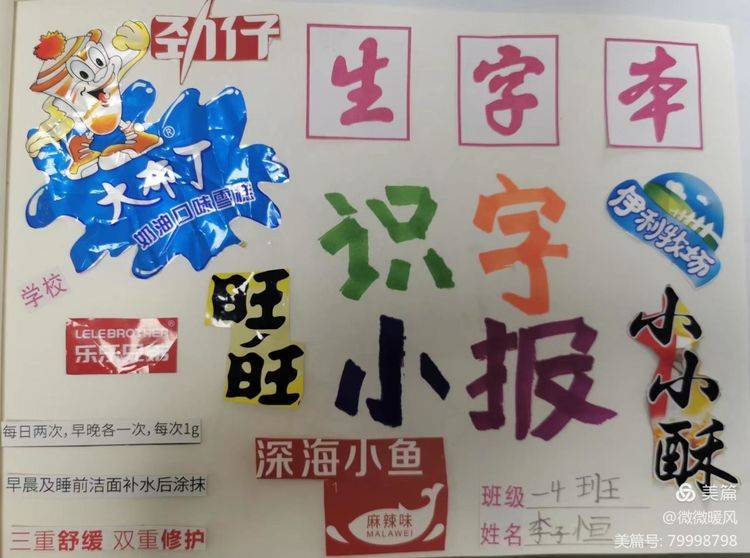 劲仔
生字本
大布丁
®
奶油口味雪糕
识字
小报
伊利牧场
学校
旺
旺
LELEBROTHER
®
小小酥
每日两次,早晚各一次,每次1g
早晨及睡前洁面补水后涂抹
三重舒缓 双重修护
深海小鱼
麻辣味
MALAWEI
班级 一4班
姓名 李子恒
美篇
@微微暖风
美篇号: 79998798